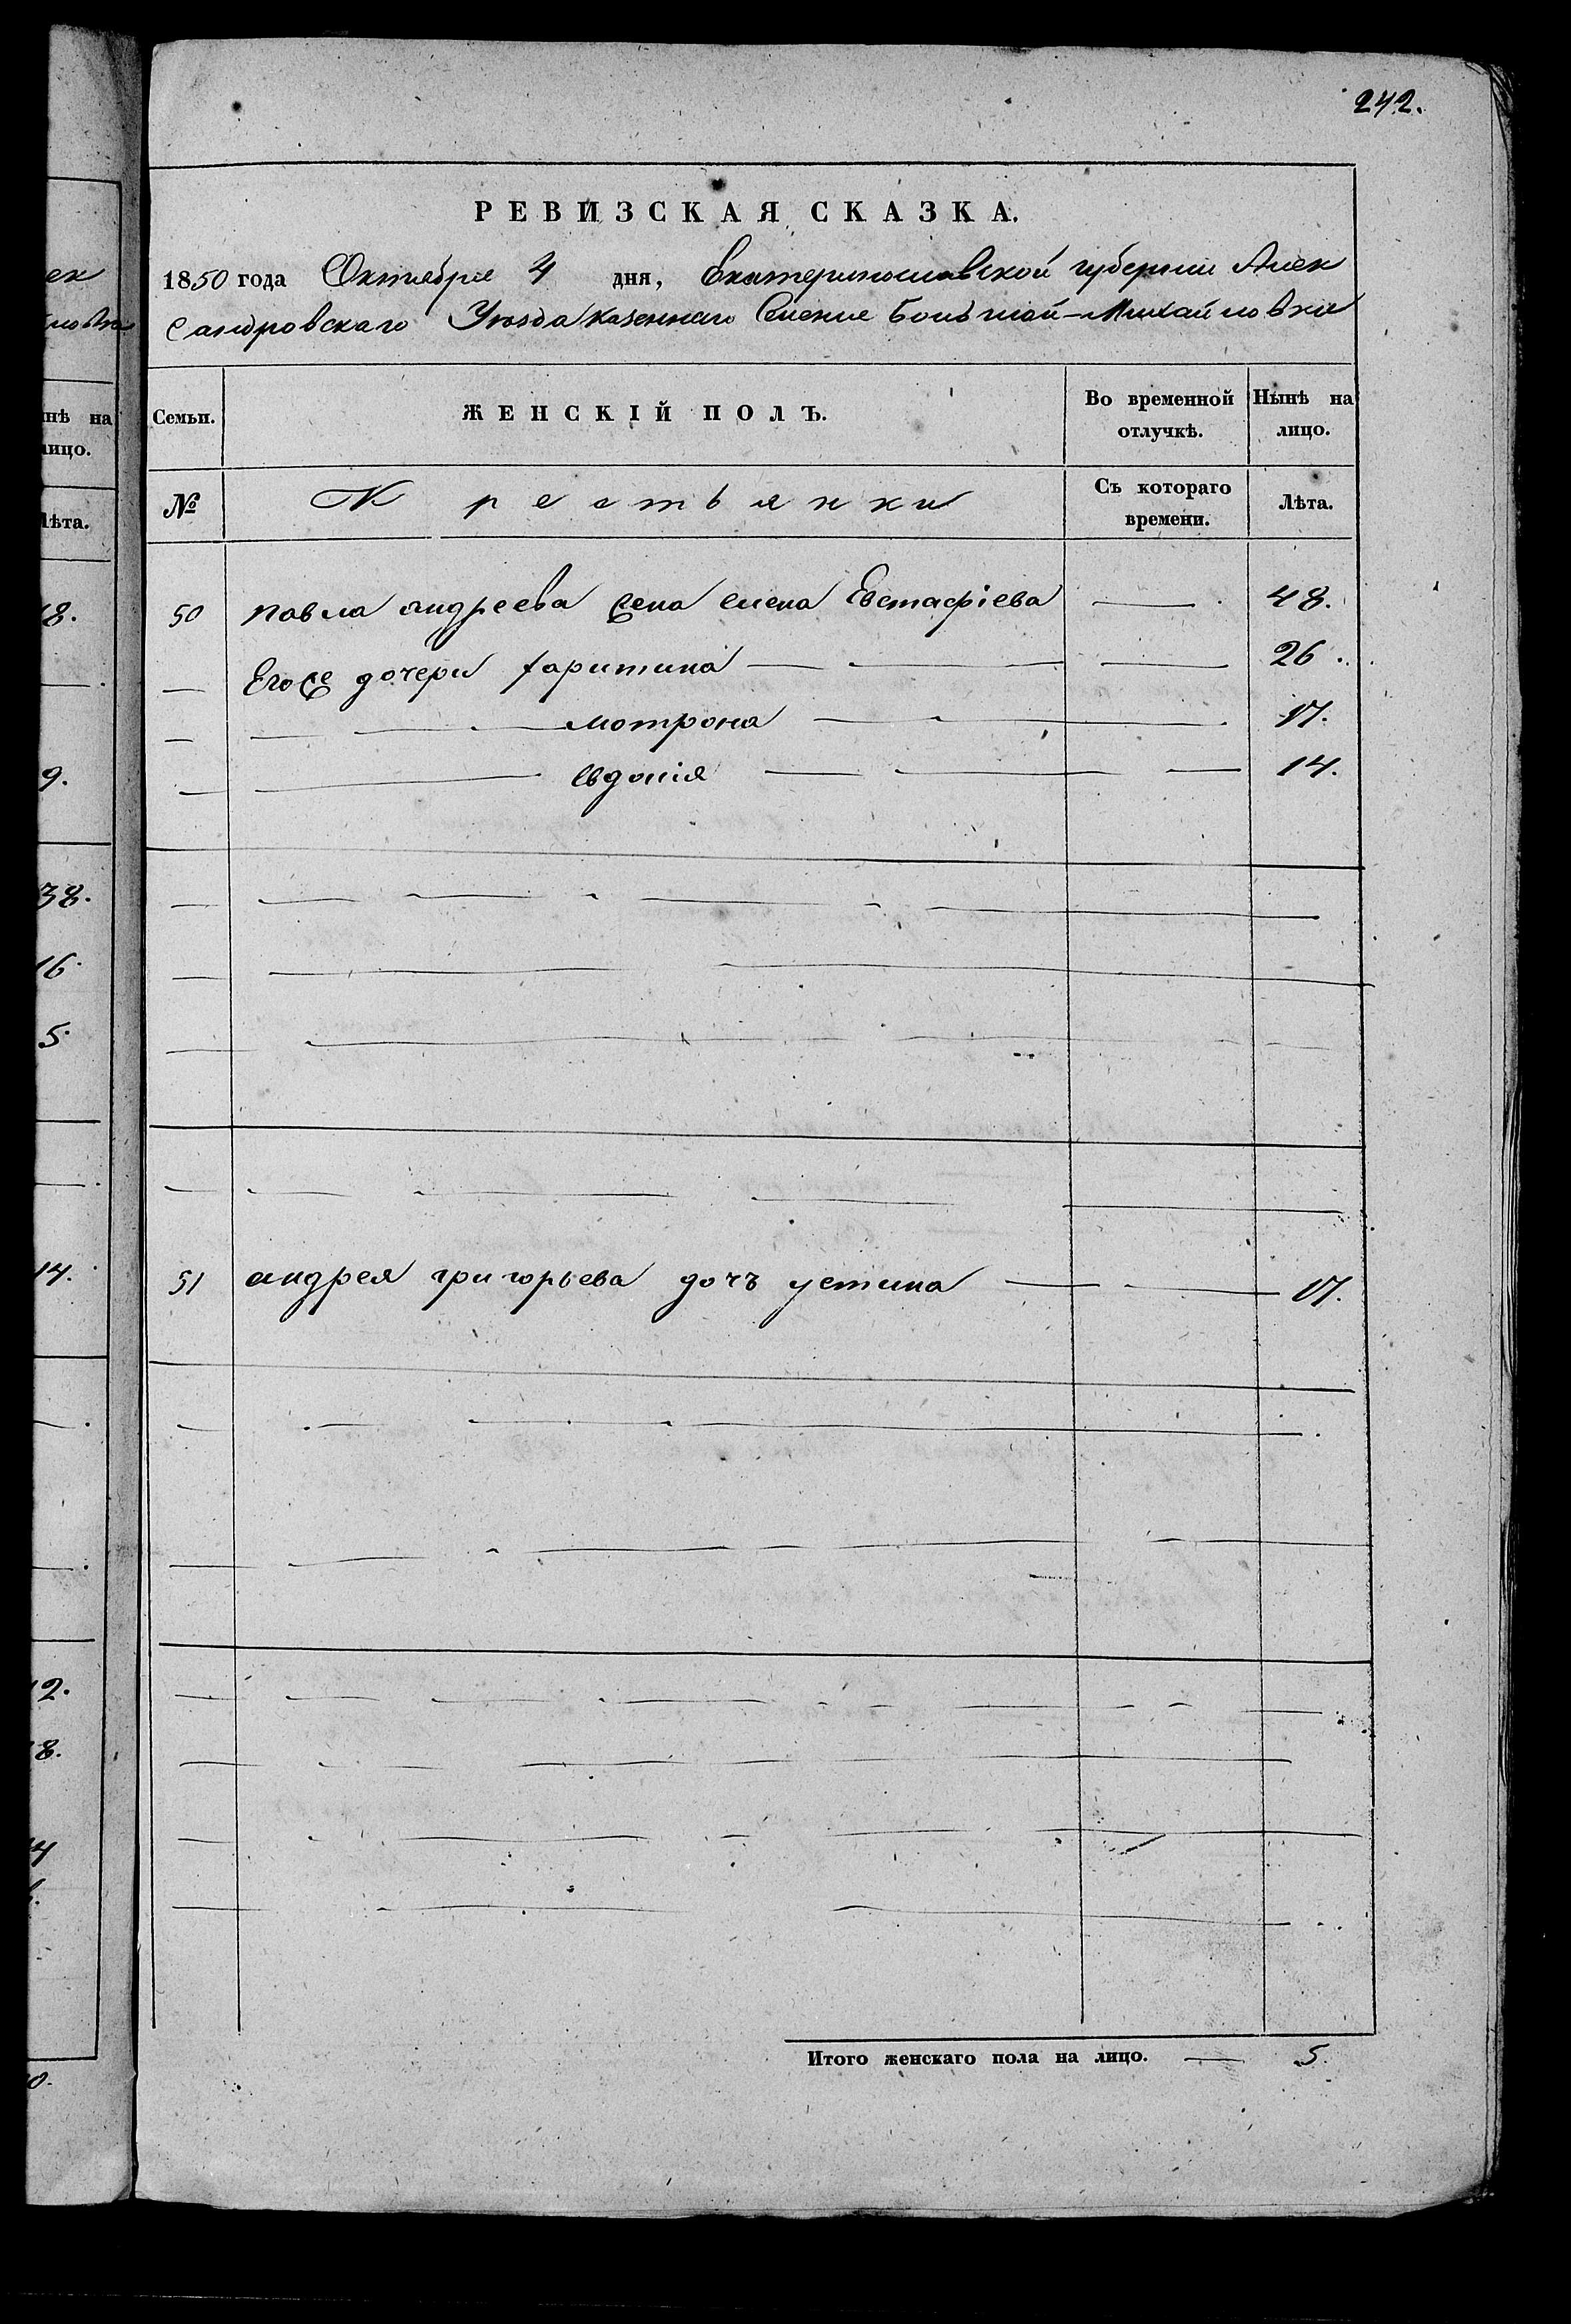 242.
РЕВИЗСКАЯ СКАЗКА.
1850 года Октября 4 дня, Екатеринославской губернии Алек
сандровскаго Уѣзда казеннаго Селенія Большой-Михайловки
Семьи.
ЖЕНСКІЙ ПОЛЪ.
Во временной отлучкѣ.
Нынѣ на лицо.
№
Крестьянки
Съ котораго времени.
Лѣта.
50 павла андреева жена елена Евстафіева 48.
Егоже дочери харитина 26.
мотрона 17.
Евдокія 14.
51 андрея григорьева дочъ устина 17.
Итого женскаго пола на лицо. 5.
ек
нѣ на
лицо.
Лѣта.
8.
9.
38.
16.
5.
14.
2.
8.